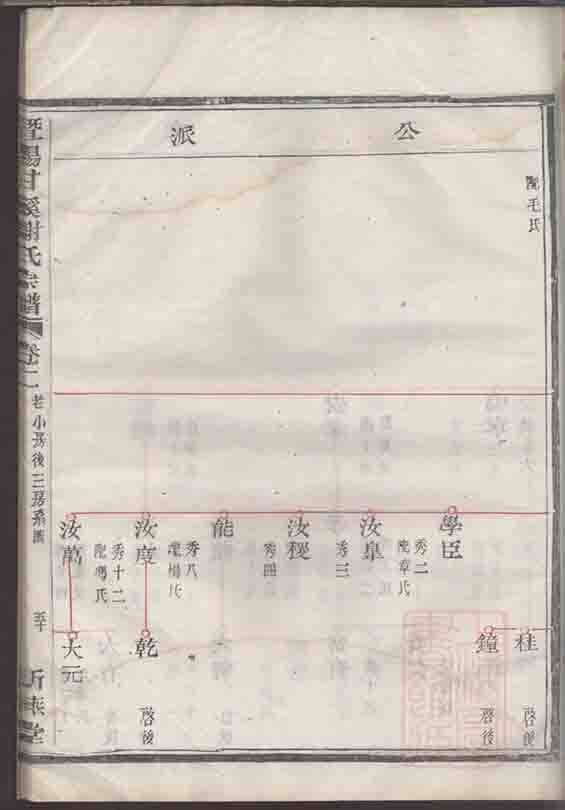 公派
配毛氏
桂
啓後
鐘
啓後
學臣
秀二
配章氏
汝皐
秀三
汝稷
秀四
能
秀八
配楊氏
汝度
乾
啓後
秀十二
配馮氏
汝萬
大元
暨陽甘溪謝氏宗譜
卷二
老小房後三房系圖